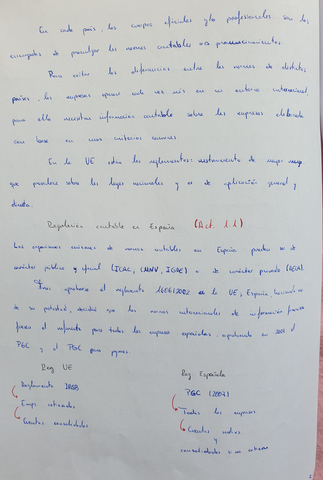 En cada país, los cuerpos oficiales y/o profesionales son los
encargados de promulgar las normas contables o pronunciamientos.
Para evitar las diferencias entre las normas de distintos
países, las empresas operan cada vez más en un entorno internacional
para ello necesitan información contable sobre las empresas elaborada
con base en unos criterios comunes.
En la UE están los reglamentos: instrumento de mayor rango
que prevalece sobre las leyes nacionales y es de aplicación general y
directa.
Regulación contable en España (Act. 1.1)
Los organismos emisores de normas contables en España pueden ser de
carácter público y oficial (ICAC, CNMV, IGAE) o de carácter privado (AECA).
Tras aprobarse el reglamento 1606/2002 en la UE, España haciendo
de su potestad, decidió que las normas internacionales de información financiera
fueran el referente para todas las empresas españolas, aprobando en 2007 el
PGC y el PGC para pymes.
Reg UE
Reg. Española
Reglamento 1606
PGC (2007)
Emp. cotizadas
Todas las empresas
Cuentas consolidadas
Cuentas
y
consolidadas si no cotizan